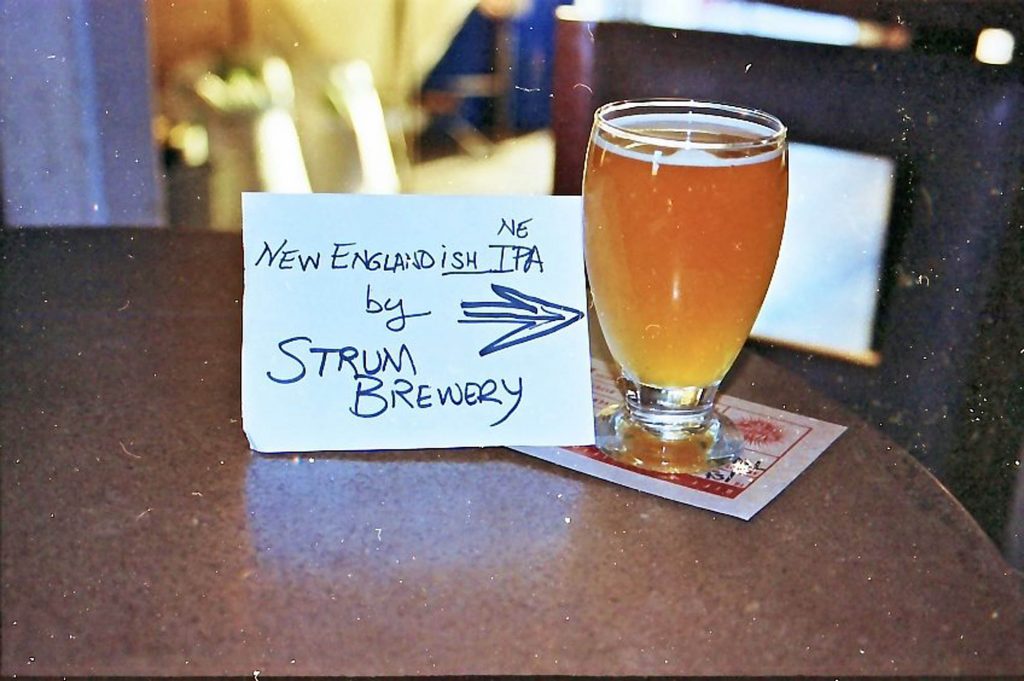 NE
NEW ENGLANDISH IPA
by
STRUM
BREWERY